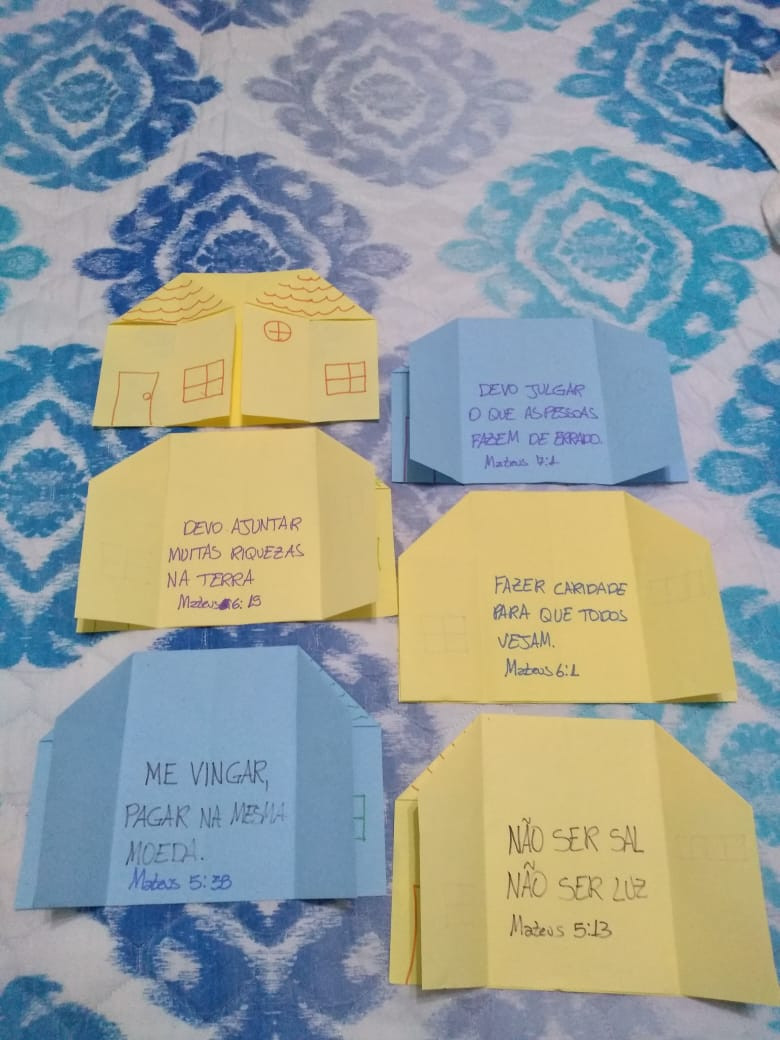 DEVO JULGAR
O QUE AS PESSOAS
FAZEM DE ERRADO.
Mateus 7:1
DEVO AJUNTAR
MUITAS RIQUEZAS
NA TERRA
Mateus 6:19
FAZER CARIDADE
PARA QUE TODOS
VEJAM.
Mateus 6:1
ME VINGAR,
PAGAR NA MESMA
MOEDA.
Mateus 5:38
NÃO SER SAL
NÃO SER LUZ
Mateus 5:13